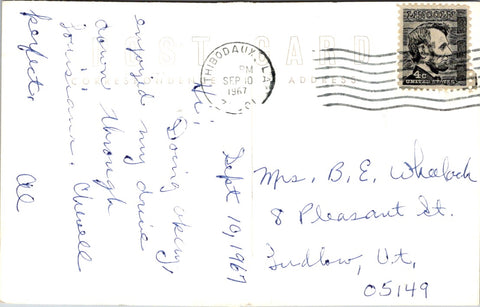 POST CARD
CORRESPONDENCE ADDRESS
THIBODAUX, LA.
PM
SEP 10
1967
4c
UNITED STATES
Sept 10, 1967
Hi,
Doing okay,
enjoyed my drive
down through
Louisiana.
perfect.
Al
Mrs. B. E. Wheelock
8 Pleasant St.
Ludlow, Vt.
05149